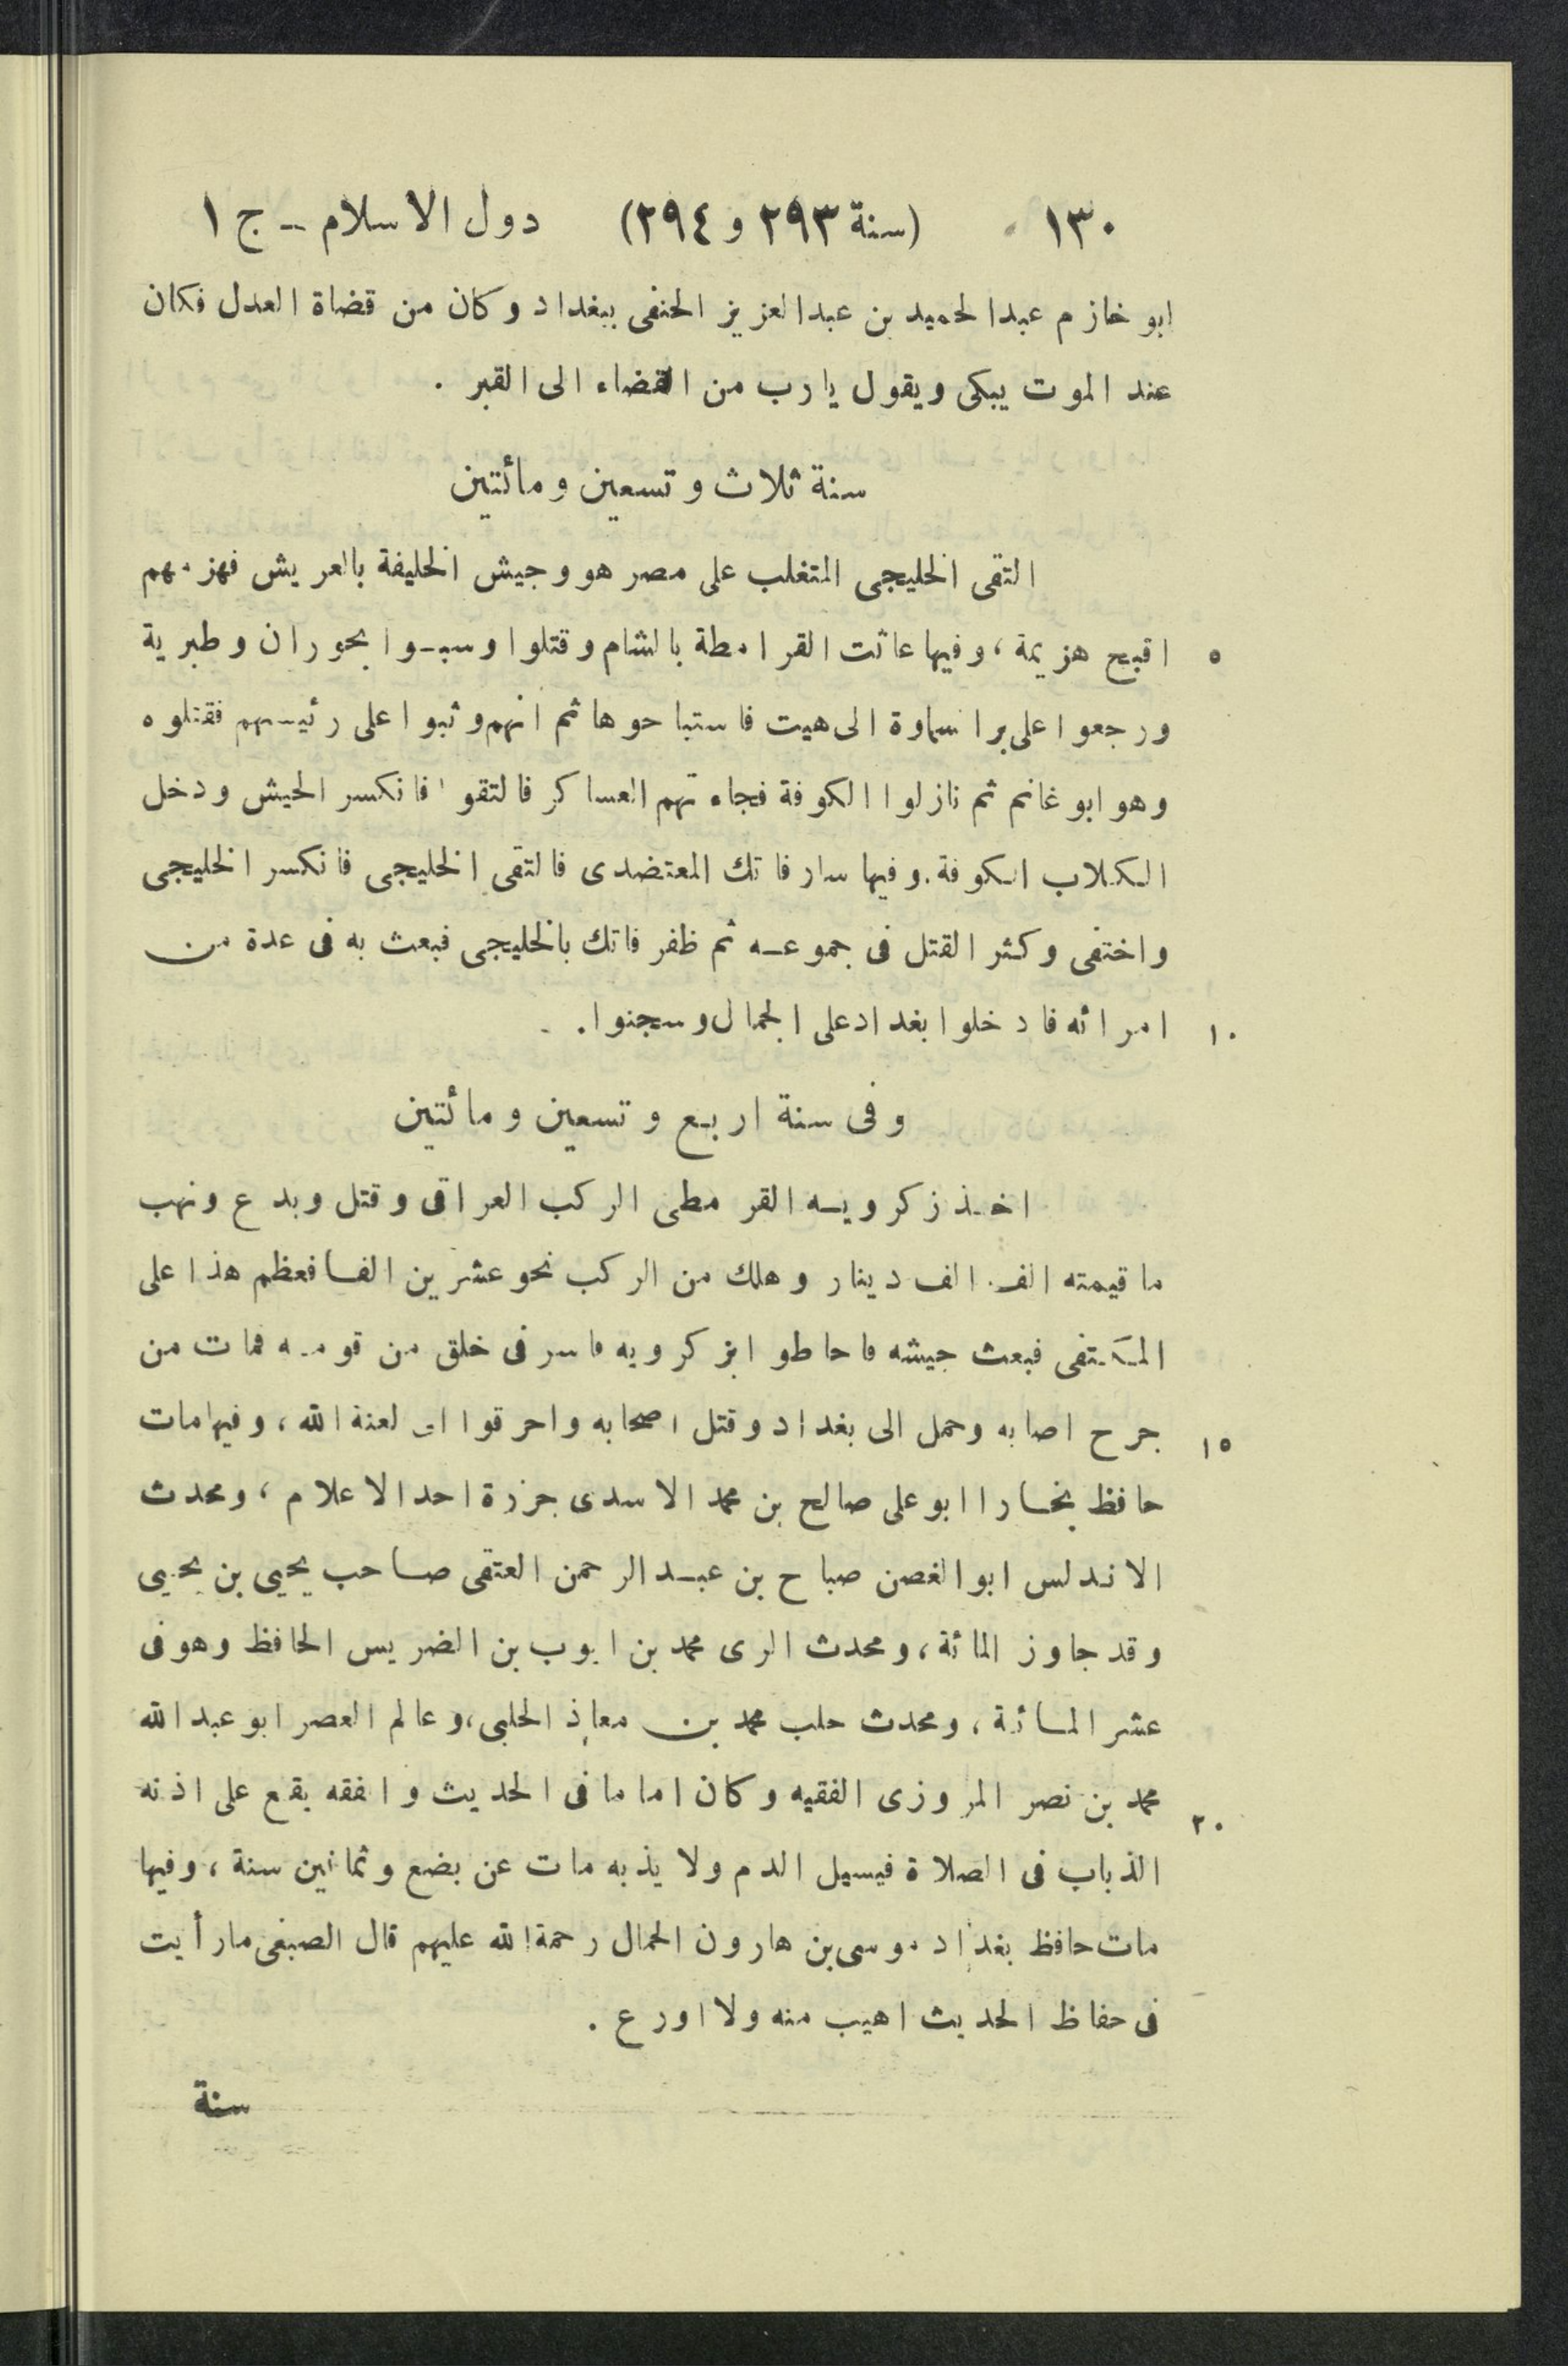 ١٣٠ (سنة ٢٩٣ و ٢٩٤) دول الاسلام - ج ١
ابو خازم عبدالحميد بن عبدالعزيز الحنفى ببغداد وكان من قضاة العدل فكان
عند الموت يبكى ويقول يارب من القضاء الى القبر .
سنة ثلاث وتسعين ومائتين
التقى الخليجى المتغلب على مصر هو وجيش الخليفة بالعريش فهزمهم
٥ اقبح هزيمة ، وفيها عاثت القرامطة بالشام وقتلوا وسبوا بحوران وطبرية
ورجعوا على بر السماوة الى هيت فاستباحوها ثم انهم وثبوا على رئيسهم فقتلوه
وهو ابو غانم ثم نازلوا الكوفة فجاءتهم العساكر فالتقوا فانكسر الجيش ودخل
الكلاب الكوفة . وفيها سار فاتك المعتضدى فالتقى الخليجى فانكسر الخليجى
واختفى وكثر القتل فى جموعه ثم ظفر فاتك بالخليجى فبعث به فى عدة من
١٠ امرائه فادخلوا بغداد على الجمال وسجنوا .
وفى سنة اربع وتسعين ومائتين
اخذ زكرويه القرمطى الركب العراقى وقتل وبدع ونهب
ما قيمته الف الف دينار وهلك من الركب نحو عشرين الفا فعظم هذا على
المكتفى فبعث جيشه فاحاطو ابزكرويه فاسر فى خلق من قومه فمات من
١٥ جرح اصابه وحمل الى بغداد وقتل اصحابه واحرقوا الى لعنة الله ، وفيها مات
حافظ بخارا ابو على صالح بن محمد الاسدى جزرة احد الاعلام ، ومحدث
الاندلس ابو الغصن صباح بن عبد الرحمن العتقى صاحب يحيى بن يحيى
وقد جاوز المائة ، ومحدث الرى محمد بن ايوب بن الضريس الحافظ وهو فى
عشر المائة ، ومحدث حلب محمد بن معاذ الحلبى ، وعالم العصر ابو عبد الله
٢٠ محمد بن نصر المروزى الفقيه وكان اماما فى الحديث والفقه يقع على اذنه
الذباب فى الصلاة فيسيل الدم ولا يذبه مات عن بضع وثمانين سنة ، وفيها
مات حافظ بغداد موسى بن هارون الحمال رحمة الله عليهم قال الصبغى مارأيت
فى حفاظ الحديث اهيب منه ولا اورع .
سنة